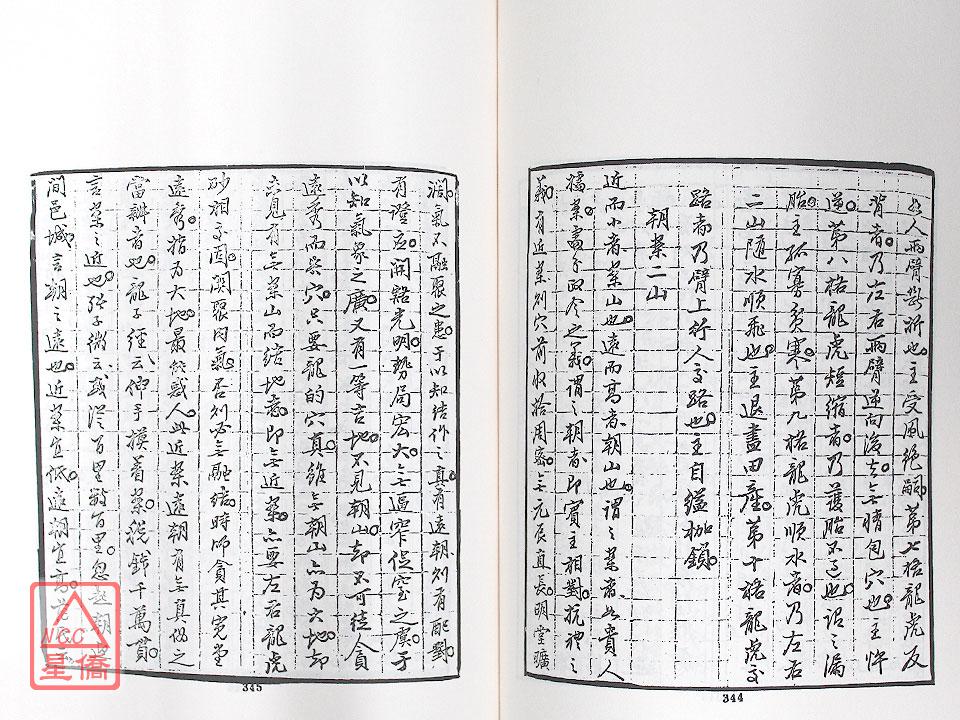 如人兩臂斷折也主受風絕嗣第七格龍虎反
背者乃左右兩臂逆向後去無情包穴也主忤
逆第八格龍虎短縮者乃護胎不過也詔之漏
胎主孤寡貧寒第九格龍虎順水者乃左右
二山隨水順飛也主退盡田產第十格龍虎交
路者乃臂上行人交路也主自縊枷鎖
朝案二山
近而小者案山也遠而高者朝山也謂之案者如貴人
據案處分政令之義謂之朝者即賓主相對抗禮之
義有近案則穴前收拾周密無元辰直長明堂曠
濶氣不融聚之患于以知結作之真有遠朝則有配對
有證應開豁光明勢局宏大無逼窄促室之廣于
以知氣象之廣又有一等言地不見朝山却不可徒貪
遠秀而失穴只要龍的穴真雖無朝山亦為穴地却
未見有無案山而結地者即無近案亦要左右龍虎
砂相交固關聚內氣否則必無融結時師貪其寬堂
遠秀指為大地最能惑人此近案遠朝有無真假之
當辨者也龍子經云伸手摸着案稅錢千萬貫
言案之近也張子微云或從百里數百里忽起朝
間邑城言朝之遠也近案宜低遠朝宜高
345
344
NCC
星僑